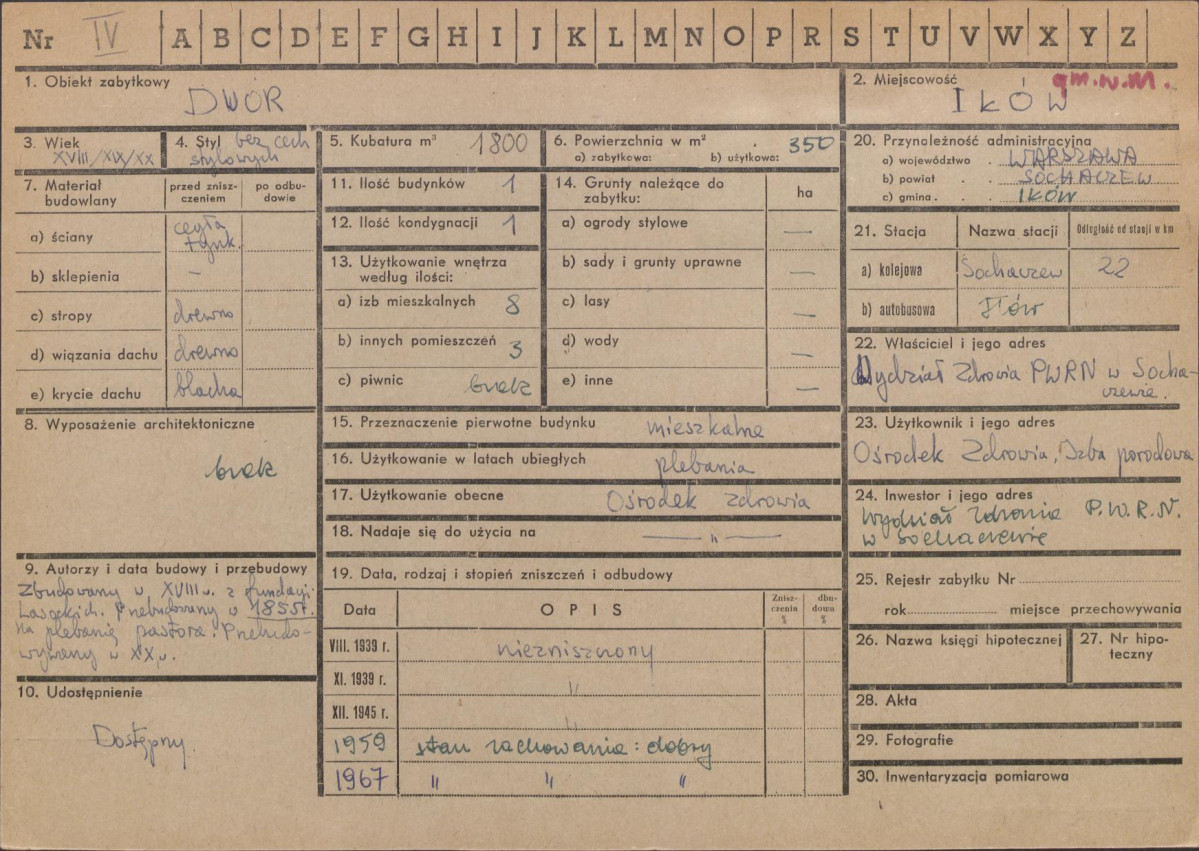 Nr IV A B C D E F G H I J K L M N O P R S T U V W X Y Z
1. Obiekt zabytkowy
DWÓR
2. Miejscowość
gm.n.m.
IŁÓW
3. Wiek
XVIII/XIX/XX
4. Styl bez cech
stylowych
5. Kubatura m³ 1800
6. Powierzchnia w m²
a) zabytkowa: b) użytkowa: 350
7. Materiał budowlany
przed zniszczeniem
po odbudowie
a) ściany cegła
tynk.
b) sklepienia –
c) stropy drewno
d) wiązania dachu drewno
e) krycie dachu blacha
8. Wyposażenie architektoniczne
brak
9. Autorzy i data budowy i przebudowy
Zbudowany w XVIII w. z fundacji
Lasockich. Przebudowany w 1855 r.
na plebanię pastora. Przebudo-
wywany w XX w.
10. Udostępnienie
Dostępny.
11. Ilość budynków 1
12. Ilość kondygnacji 1
13. Użytkowanie wnętrza
według ilości:
a) izb mieszkalnych 8
b) innych pomieszczeń 3
c) piwnic brak
14. Grunty należące do
zabytku:
ha
a) ogrody stylowe —
b) sady i grunty uprawne —
c) lasy —
d) wody —
e) inne —
15. Przeznaczenie pierwotne budynku mieszkalne
16. Użytkowanie w latach ubiegłych plebania
17. Użytkowanie obecne Ośrodek zdrowia
18. Nadaje się do użycia na — „ —
19. Data, rodzaj i stopień zniszczeń i odbudowy
Data
OPIS
Znisz-
czenia
%
dbu-
dowa
%
VIII. 1939 r. niezniszczony
XI. 1939 r. „
XII. 1945 r. „
1959 stan zachowania: dobry
1967 „ „ „
20. Przynależność administracyjna
a) województwo . WARSZAWA
b) powiat . . SOCHACZEW
c) gmina . . IŁÓW
21. Stacja
Nazwa stacji
Odległość od stacji w km
a) kolejowa Sochaczew 22
b) autobusowa Iłów
22. Właściciel i jego adres
Wydział Zdrowia PWRN w Socha-
czewie.
23. Użytkownik i jego adres
Ośrodek Zdrowia, Izba porodowa
24. Inwestor i jego adres
Wydział Zdrowia P.W.R.N.
w Sochaczewie
25. Rejestr zabytku Nr
rok miejsce przechowywania
26. Nazwa księgi hipotecznej
27. Nr hipo-
teczny
28. Akta
29. Fotografie
30. Inwentaryzacja pomiarowa